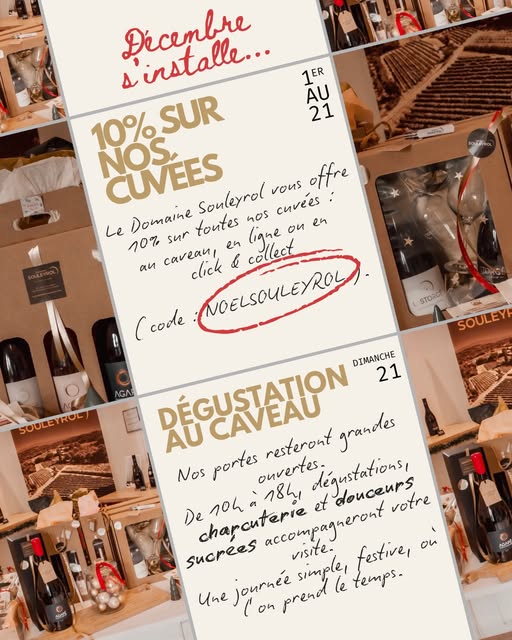 Décembre
s'installe...
1ER
AU
21
10% SUR
NOS
CUVÉES
Le Domaine Souleyrol vous offre
10% sur toutes nos cuvées :
au caveau, en ligne ou en
click & collect
(code : NOELSOULEYROL).
DIMANCHE
21
DÉGUSTATION
AU CAVEAU
Nos portes resteront grandes
ouvertes.
De 10h à 18h, dégustations,
charcuterie et douceurs
sucrées accompagneront votre
visite.
Une journée simple, festive, où
l'on prend le temps.
SOULEYROL
SOULEYROL
SOULEYROL